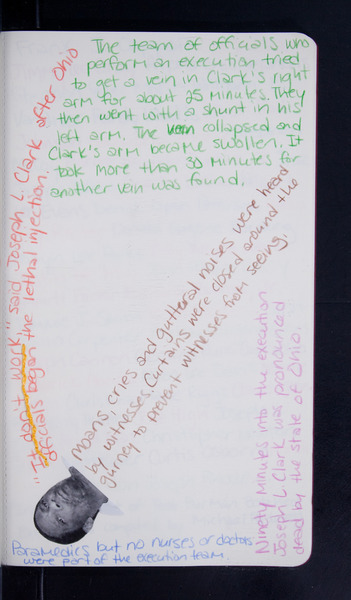 The team of officials who
perform an execution tried
to get a vein in Clark's right
arm for about 25 minutes. They
then went with a shunt in his
left arm. The vein collapsed and
Clark's arm became swollen. It
took more than 30 minutes for
another vein was found.
"It don't work," said Joseph L. Clark after Ohio
officials began the lethal injection.
moans, cries and gutteral noises were heard
by witnesses. Curtains were closed around the
gurney to prevent witnesses from seeing.
Ninety minutes into the execution
Joseph L Clark was pronounced
dead by the state of Ohio.
Paramedics but no nurses or doctors
were part of the execution team.